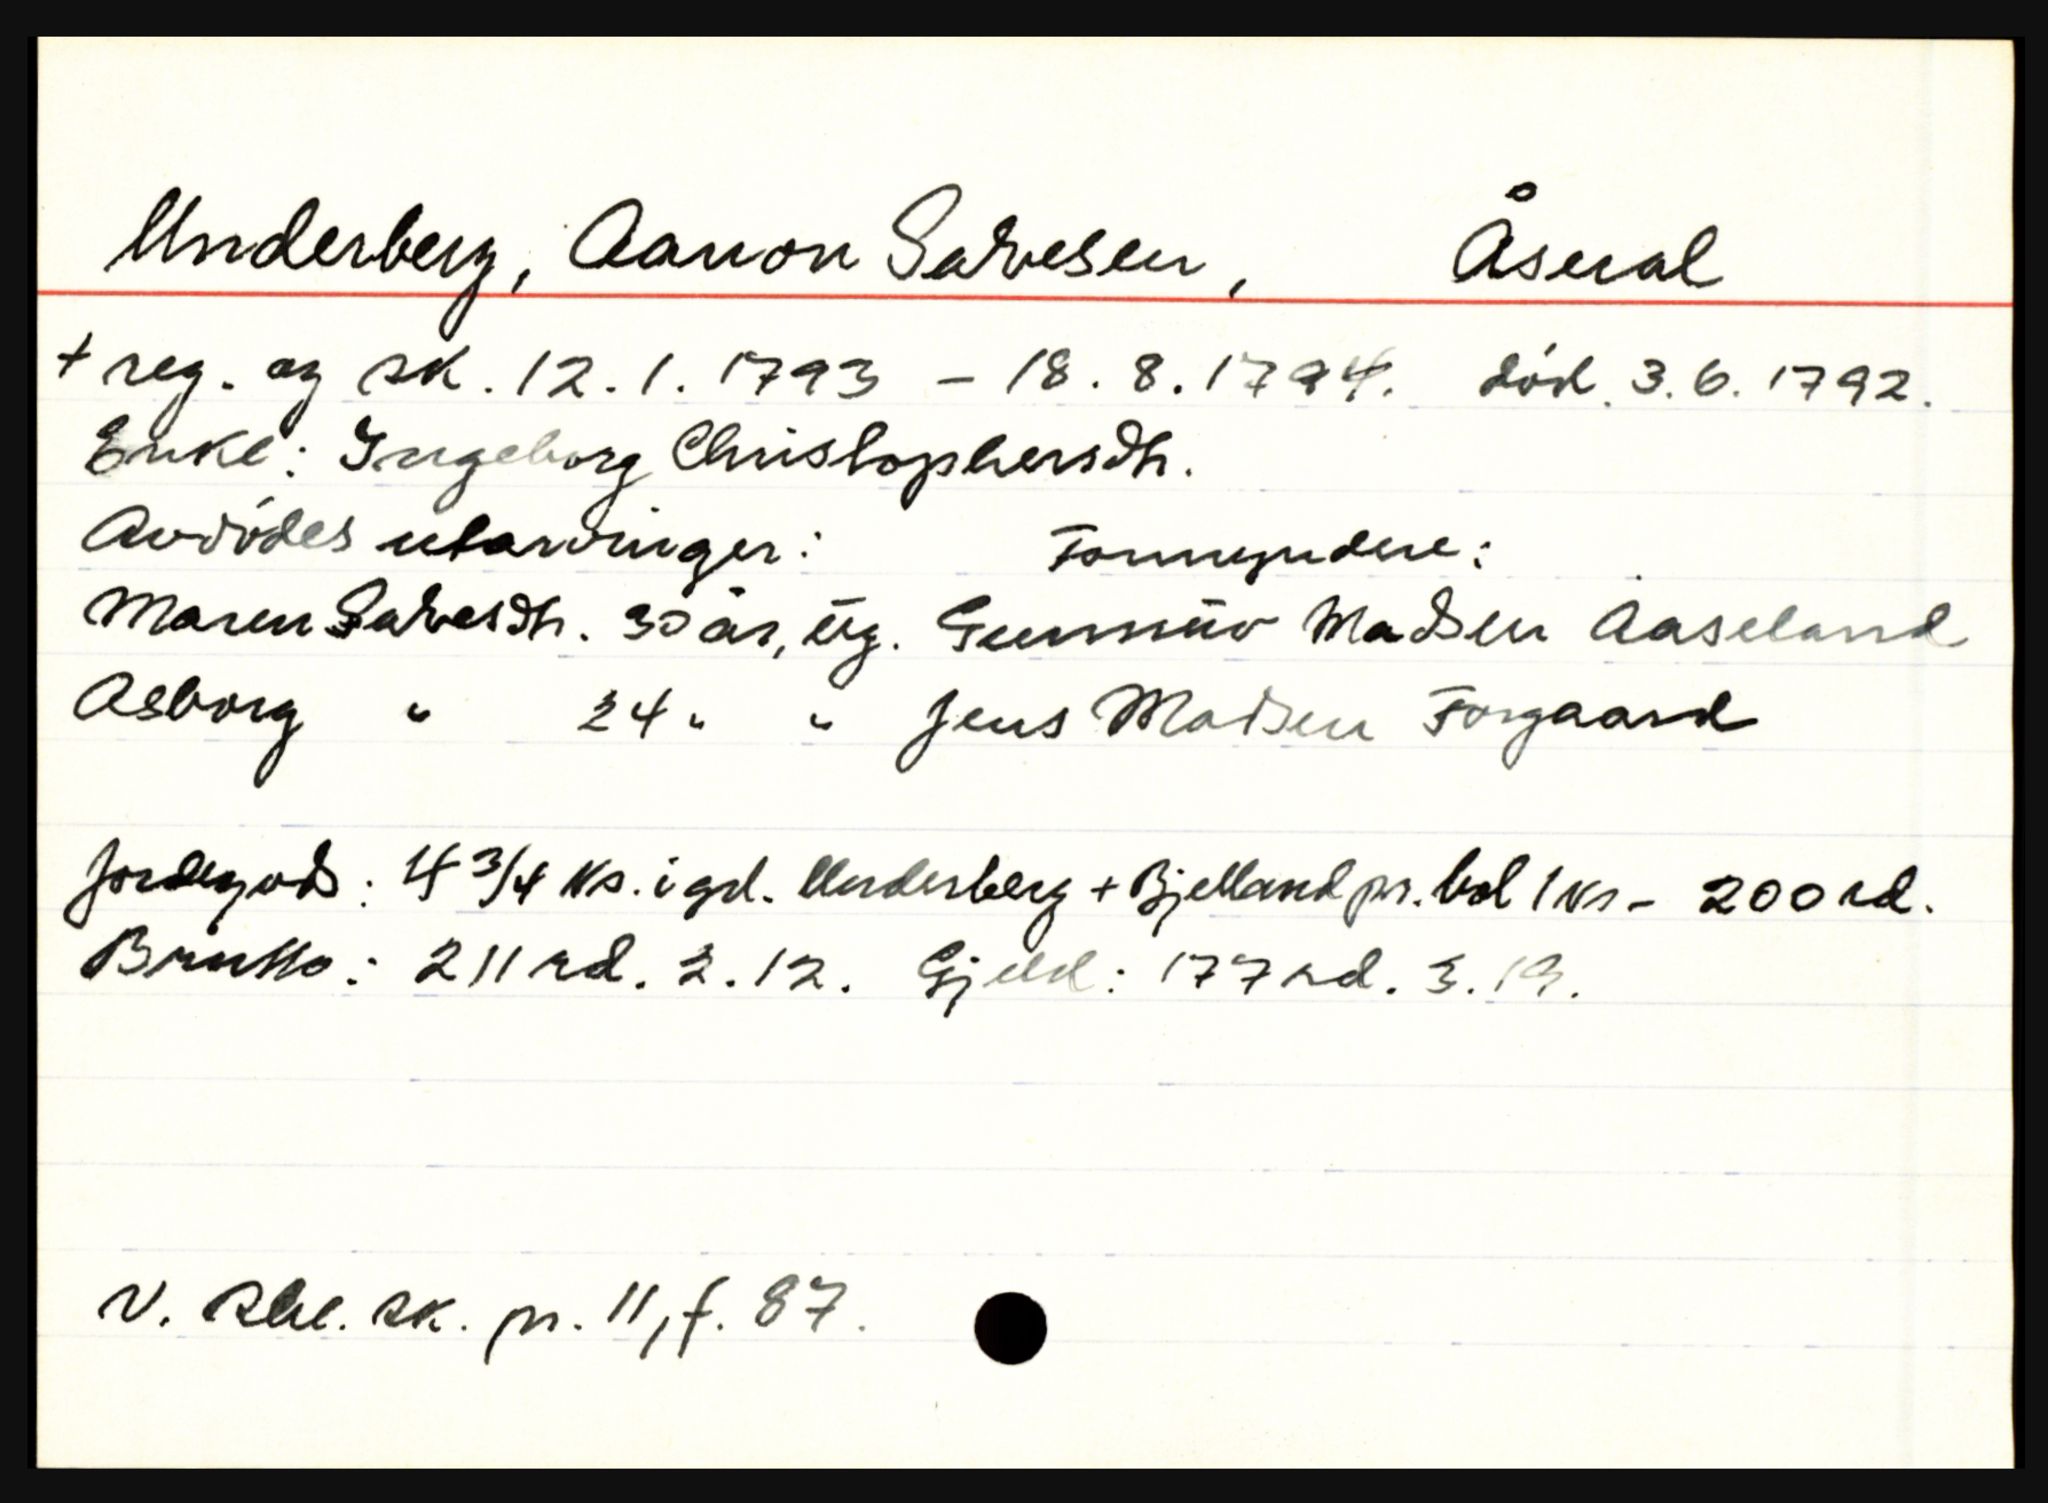 Underberg, Aanon Salvesen, Åseral
+ reg. og sk. 12.1.1793 - 18.8.1794. död. 3.6.1792.
Enke: Ingeborg Christophersdtr.
Avdödes utarvinger: Formyndere:
Maren Salvesdtr. 30 år, ug. Gunnuv Madsen Aaseland
Asborg " 24 " " Jens Madsen Forgaard
Jordegods: 4 3/4 ks. i grd. Underberg + Bjelland pr. bol 1 ks - 200 rd.
Brutto: 211 rd. 2.12. Gjeld: 177 rd. 3.19.
V. Rbl. sk. pr. 11, f. 87.